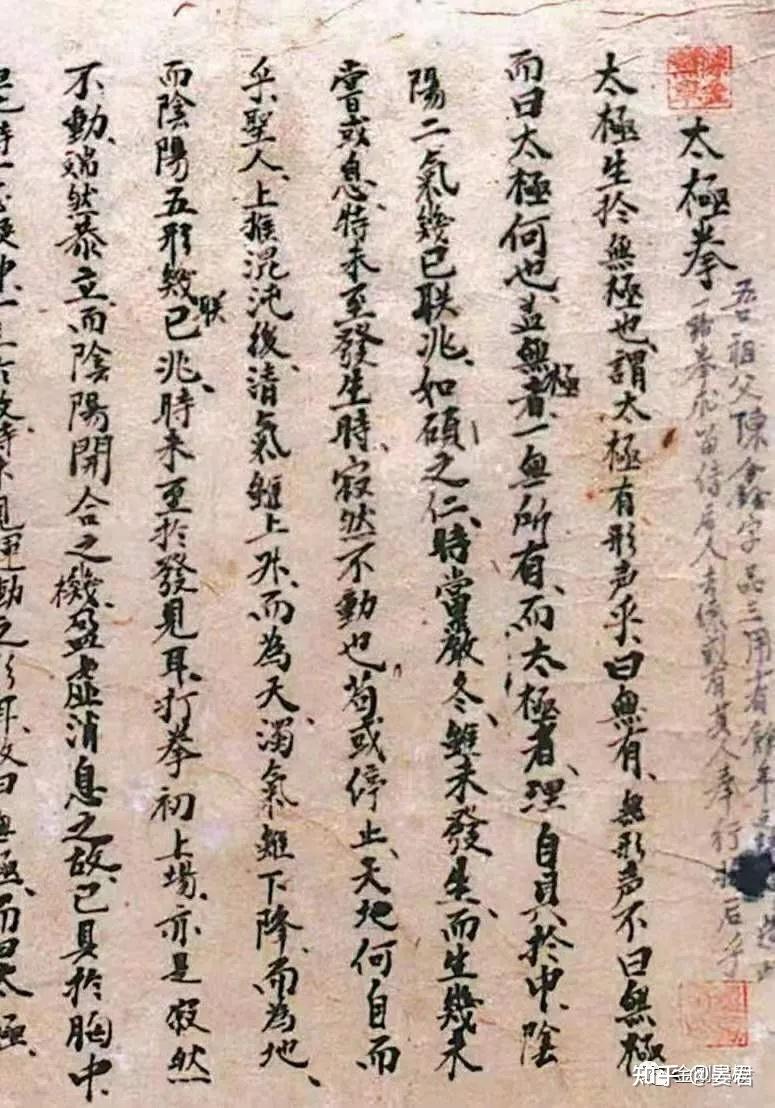 吾祖父陳鑫字品三用十有餘年
一路拳 留待后人 或有其人奉行於后乎
太極拳
太極生扵無極也、謂太極有形声乎、曰無有、無形声不曰無極
而曰太極何也、盖無極者、一無所有、而太極者、理自具扵中、陰
陽二氣幾已联兆、如碩之仁、時當嚴冬、雖未發生、而生幾未
嘗或息、特未至發生時、寂然不動也、苟或停止、天地何自而
乎、聖人、上推混沌後、清氣雖上升、而為天、濁氣雖下降、而為地、
而陰陽五形幾已联兆、時未至扵發見耳、打拳初上場、亦是寂然
不動、端然恭立、而陰陽開合之機、盈虛消息之故、已具扵胸中、
時一志 神、一主於敬、特未見運動之形耳、故曰無極、而曰太極、
知乎 @晏君